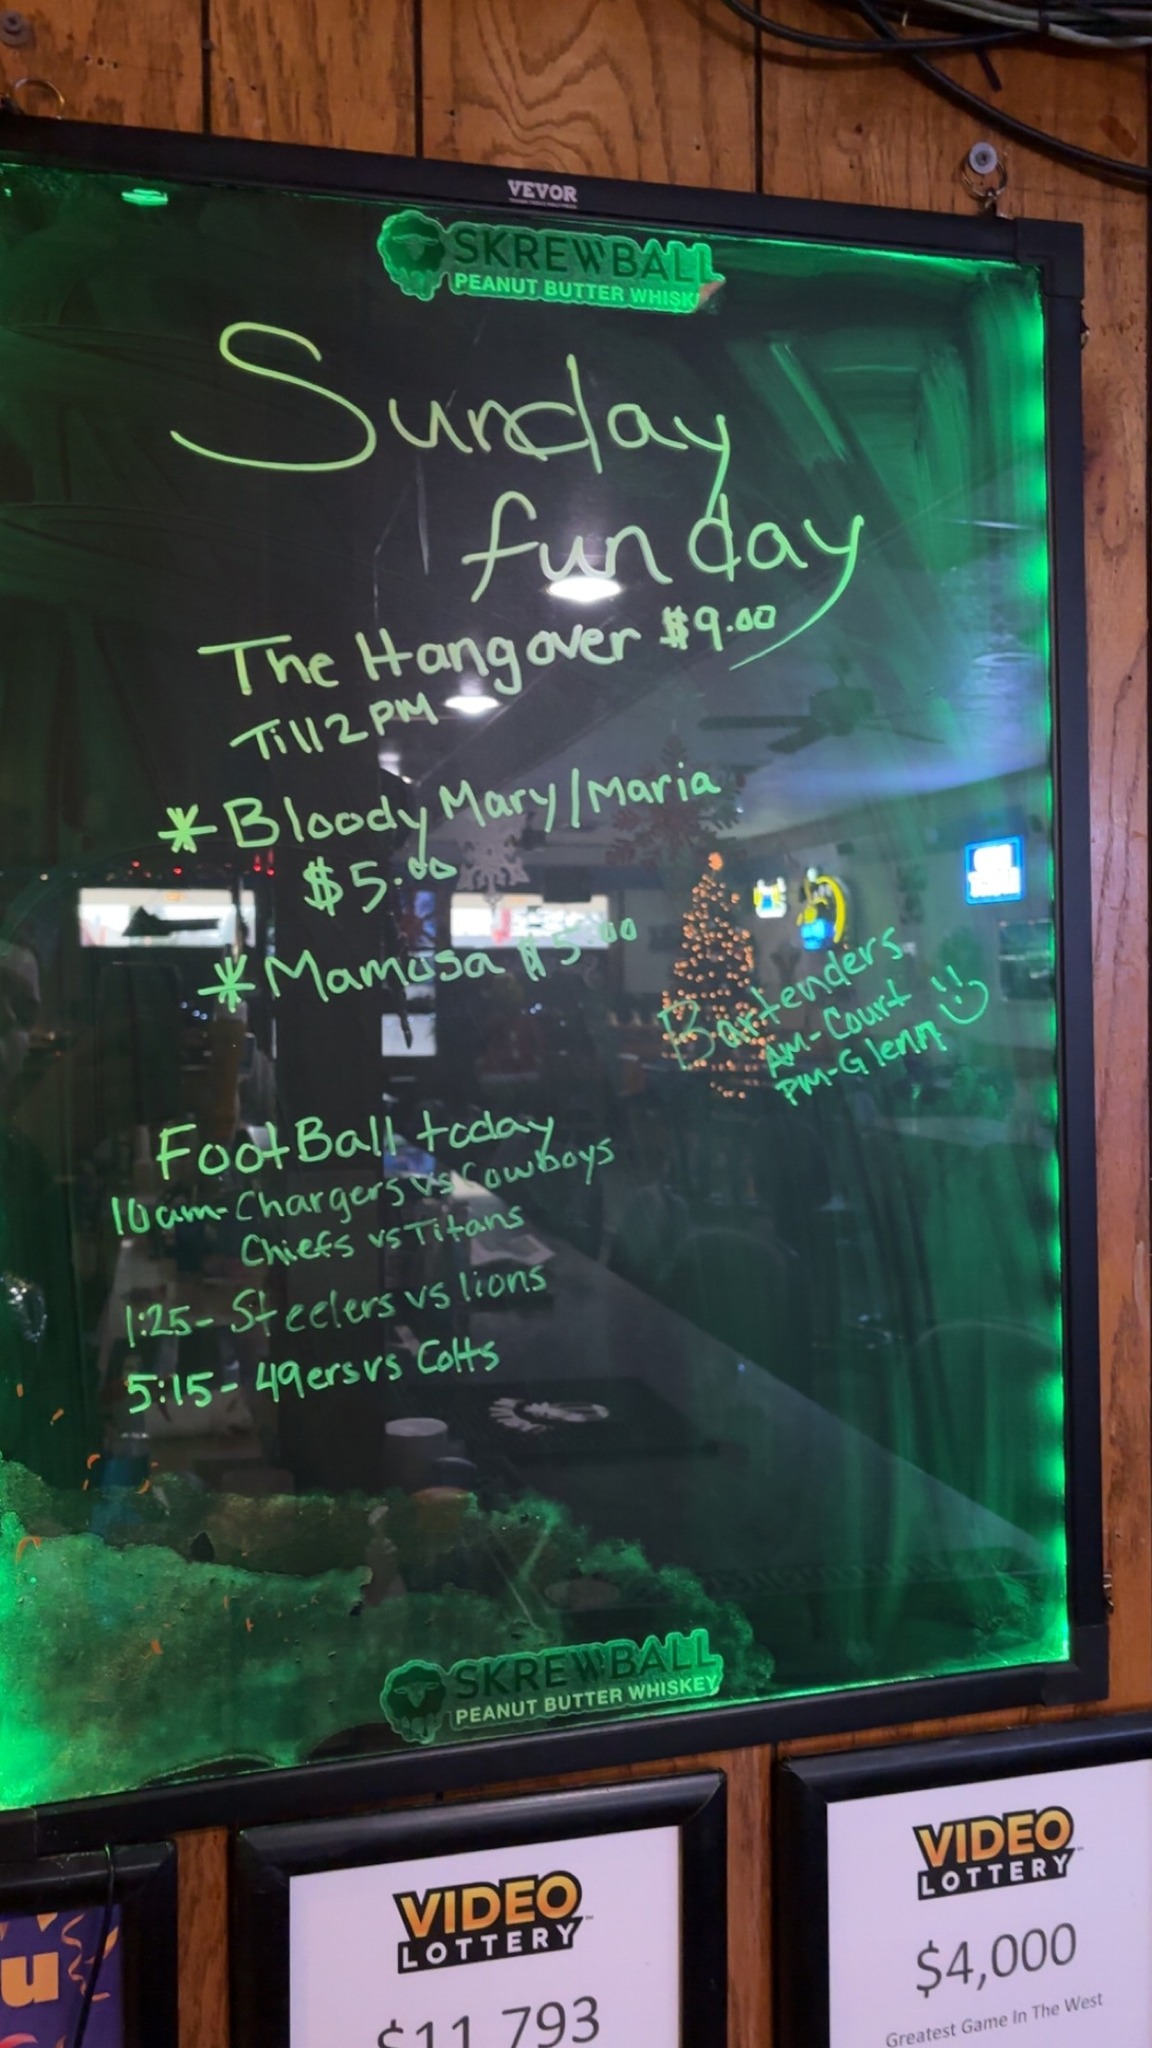 VEVOR
SKREWBALL
PEANUT BUTTER WHISK
Sunday
funday
The Hangover $9.00
Till 2 PM
* Bloody Mary/Maria
$5.00
* Mamosa $5.00
Bartenders
AM-Court
PM-Glenn
FootBall today
10am- Chargers vs Cowboys
Chiefs vs Titans
1:25- Steelers vs lions
5:15- 49ers vs Colts
SKREWBALL
PEANUT BUTTER WHISKEY
VIDEO
LOTTERY™
$11,793
VIDEO
LOTTERY™
$4,000
Greatest Game In The West
u